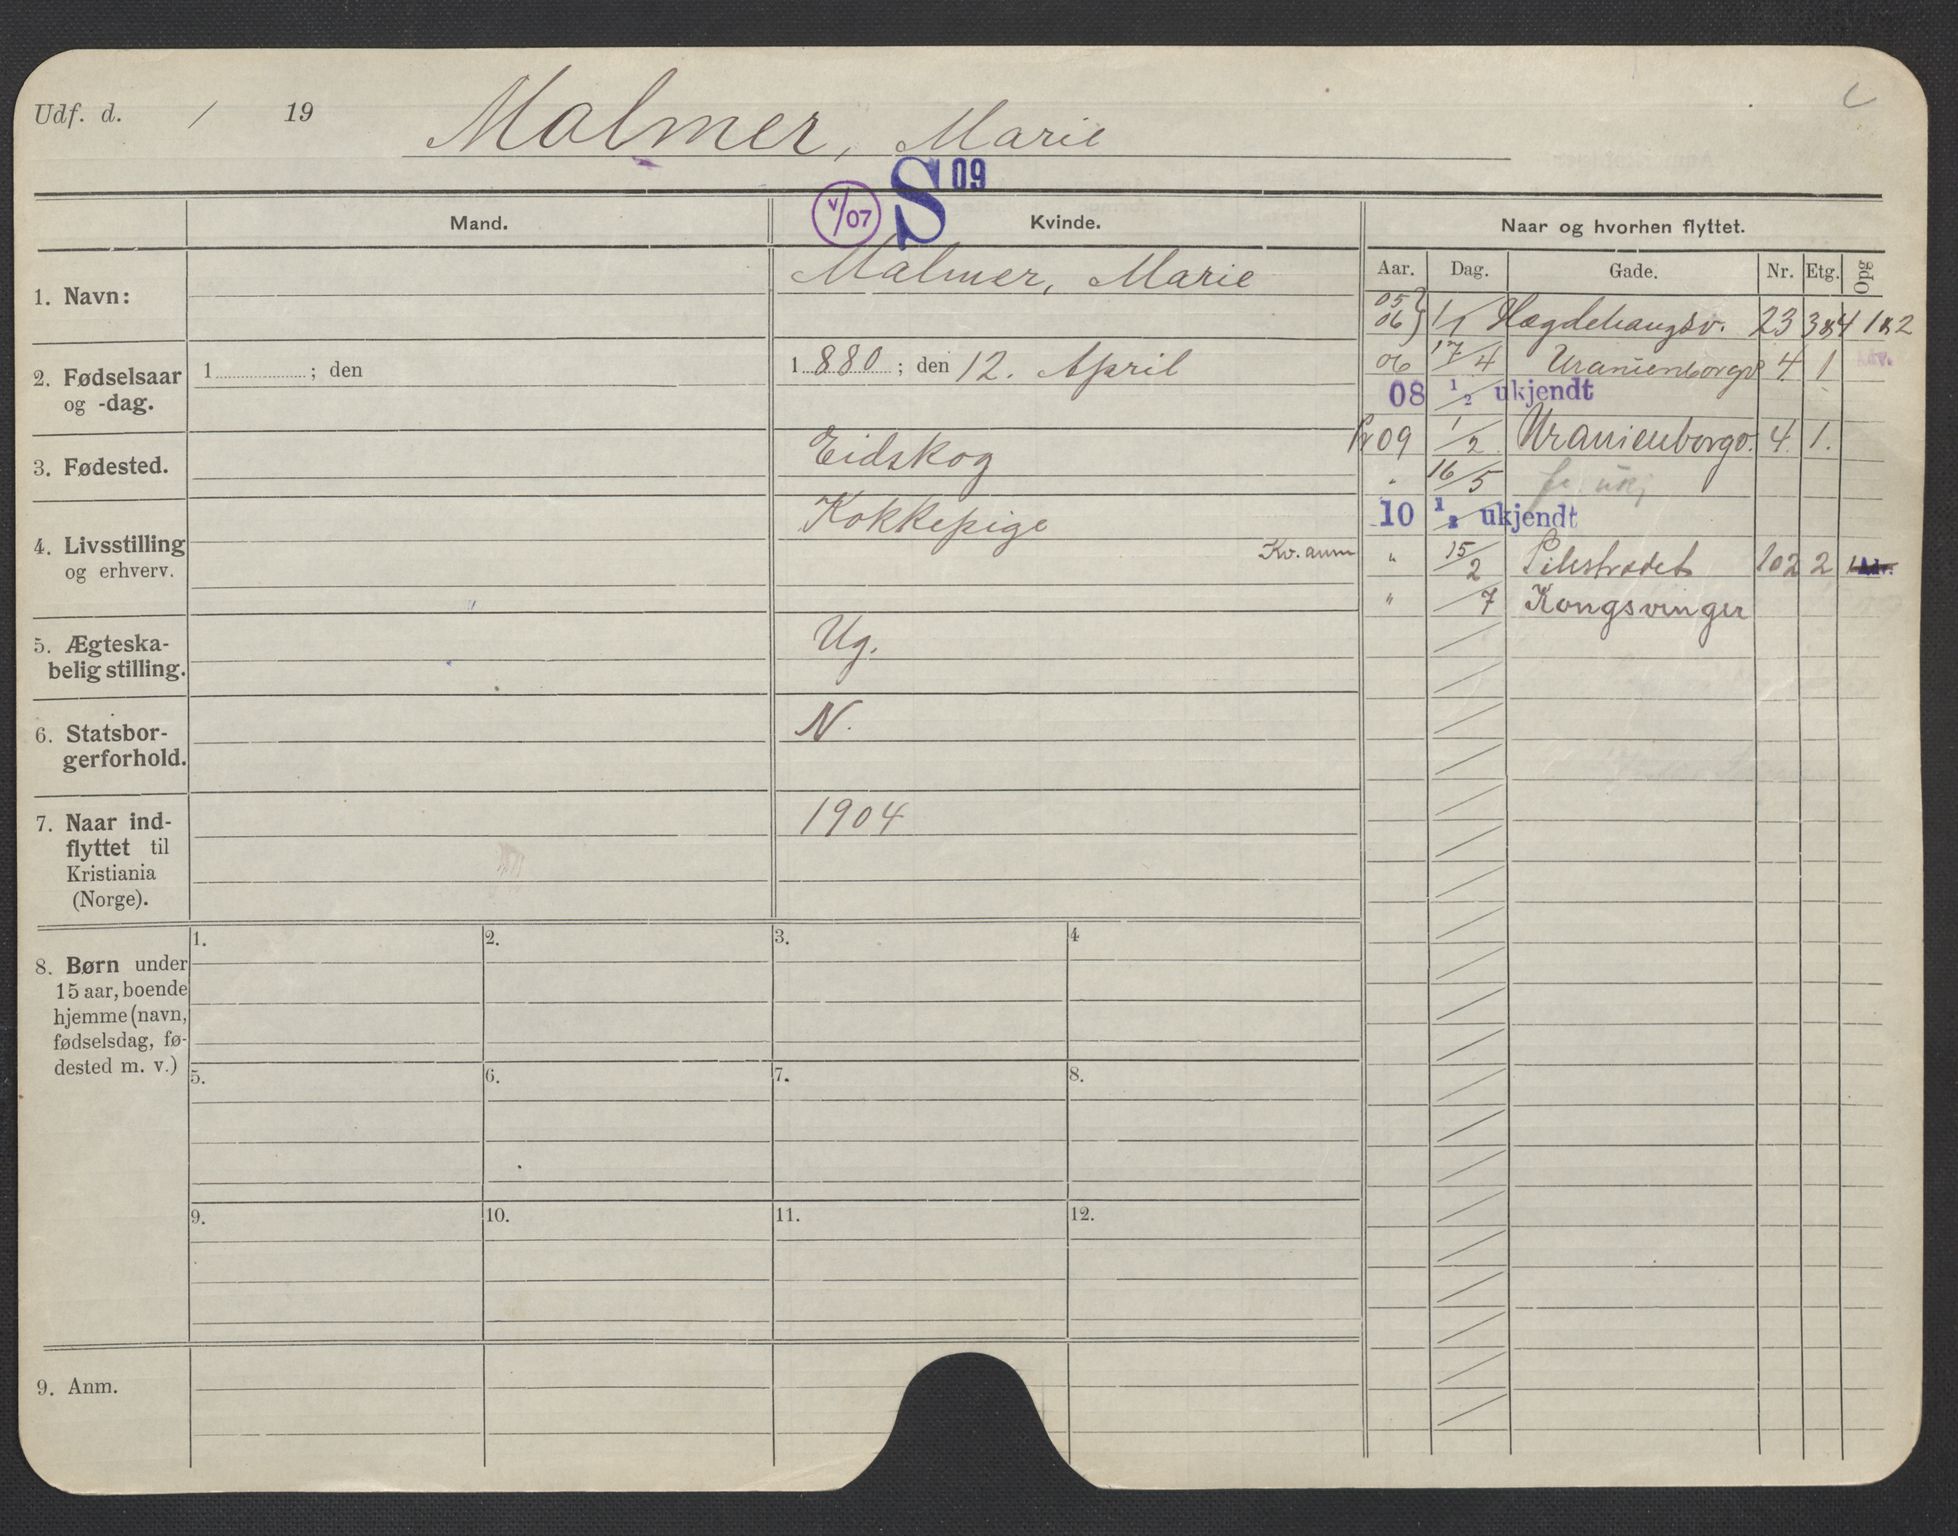 Udf. d. / 19 Malmer, Marie
V/07 S 09
Mand. Kvinde. Naar og hvorhen flyttet.
Aar. Dag. Gade. Nr. Etg. Opg
1. Navn: Malmer, Marie
2. Fødselsaar og -dag. 1 ; den 1 880 ; den 12. April
3. Fødested. Eidskog
4. Livsstilling og erhverv. Kokkepige
Kv. anm
5. Ægteska-
belig stilling. Ug.
6. Statsbor-
gerforhold. N.
7. Naar ind-
flyttet til
Kristiania
(Norge). 1904
05
06 1/1 Hægdehaugsv. 23 3&4 1&2
06 17/4 Uranienborgv 4 1 Adv.
08 1/2 ukjendt
09 1/2 Uranienborgv. 4 1.
" 16/5 ukj
10 1/2 ukjendt
" 15/2 Pilestrædet 102 2 Adv.
" /7 Kongsvinger
8. Børn under
15 aar, boende
hjemme (navn,
fødselsdag, fø-
dested m. v.)
1. 2. 3. 4
5. 6. 7. 8.
9. 10. 11. 12.
9. Anm.